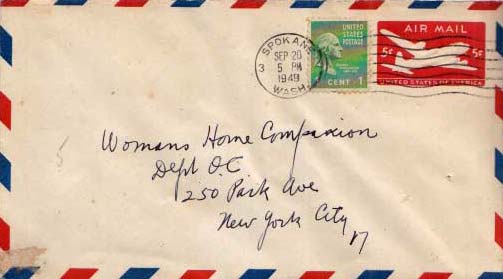 SPOKANE
SEP 26
5 PM
1949
WASH.
3
UNITED
STATES
POSTAGE
CENT 1
AIR MAIL
5¢ 5¢
UNITED STATES OF AMERICA
Womans Home Companion
Dept O.C
250 Park Ave
New York City
17